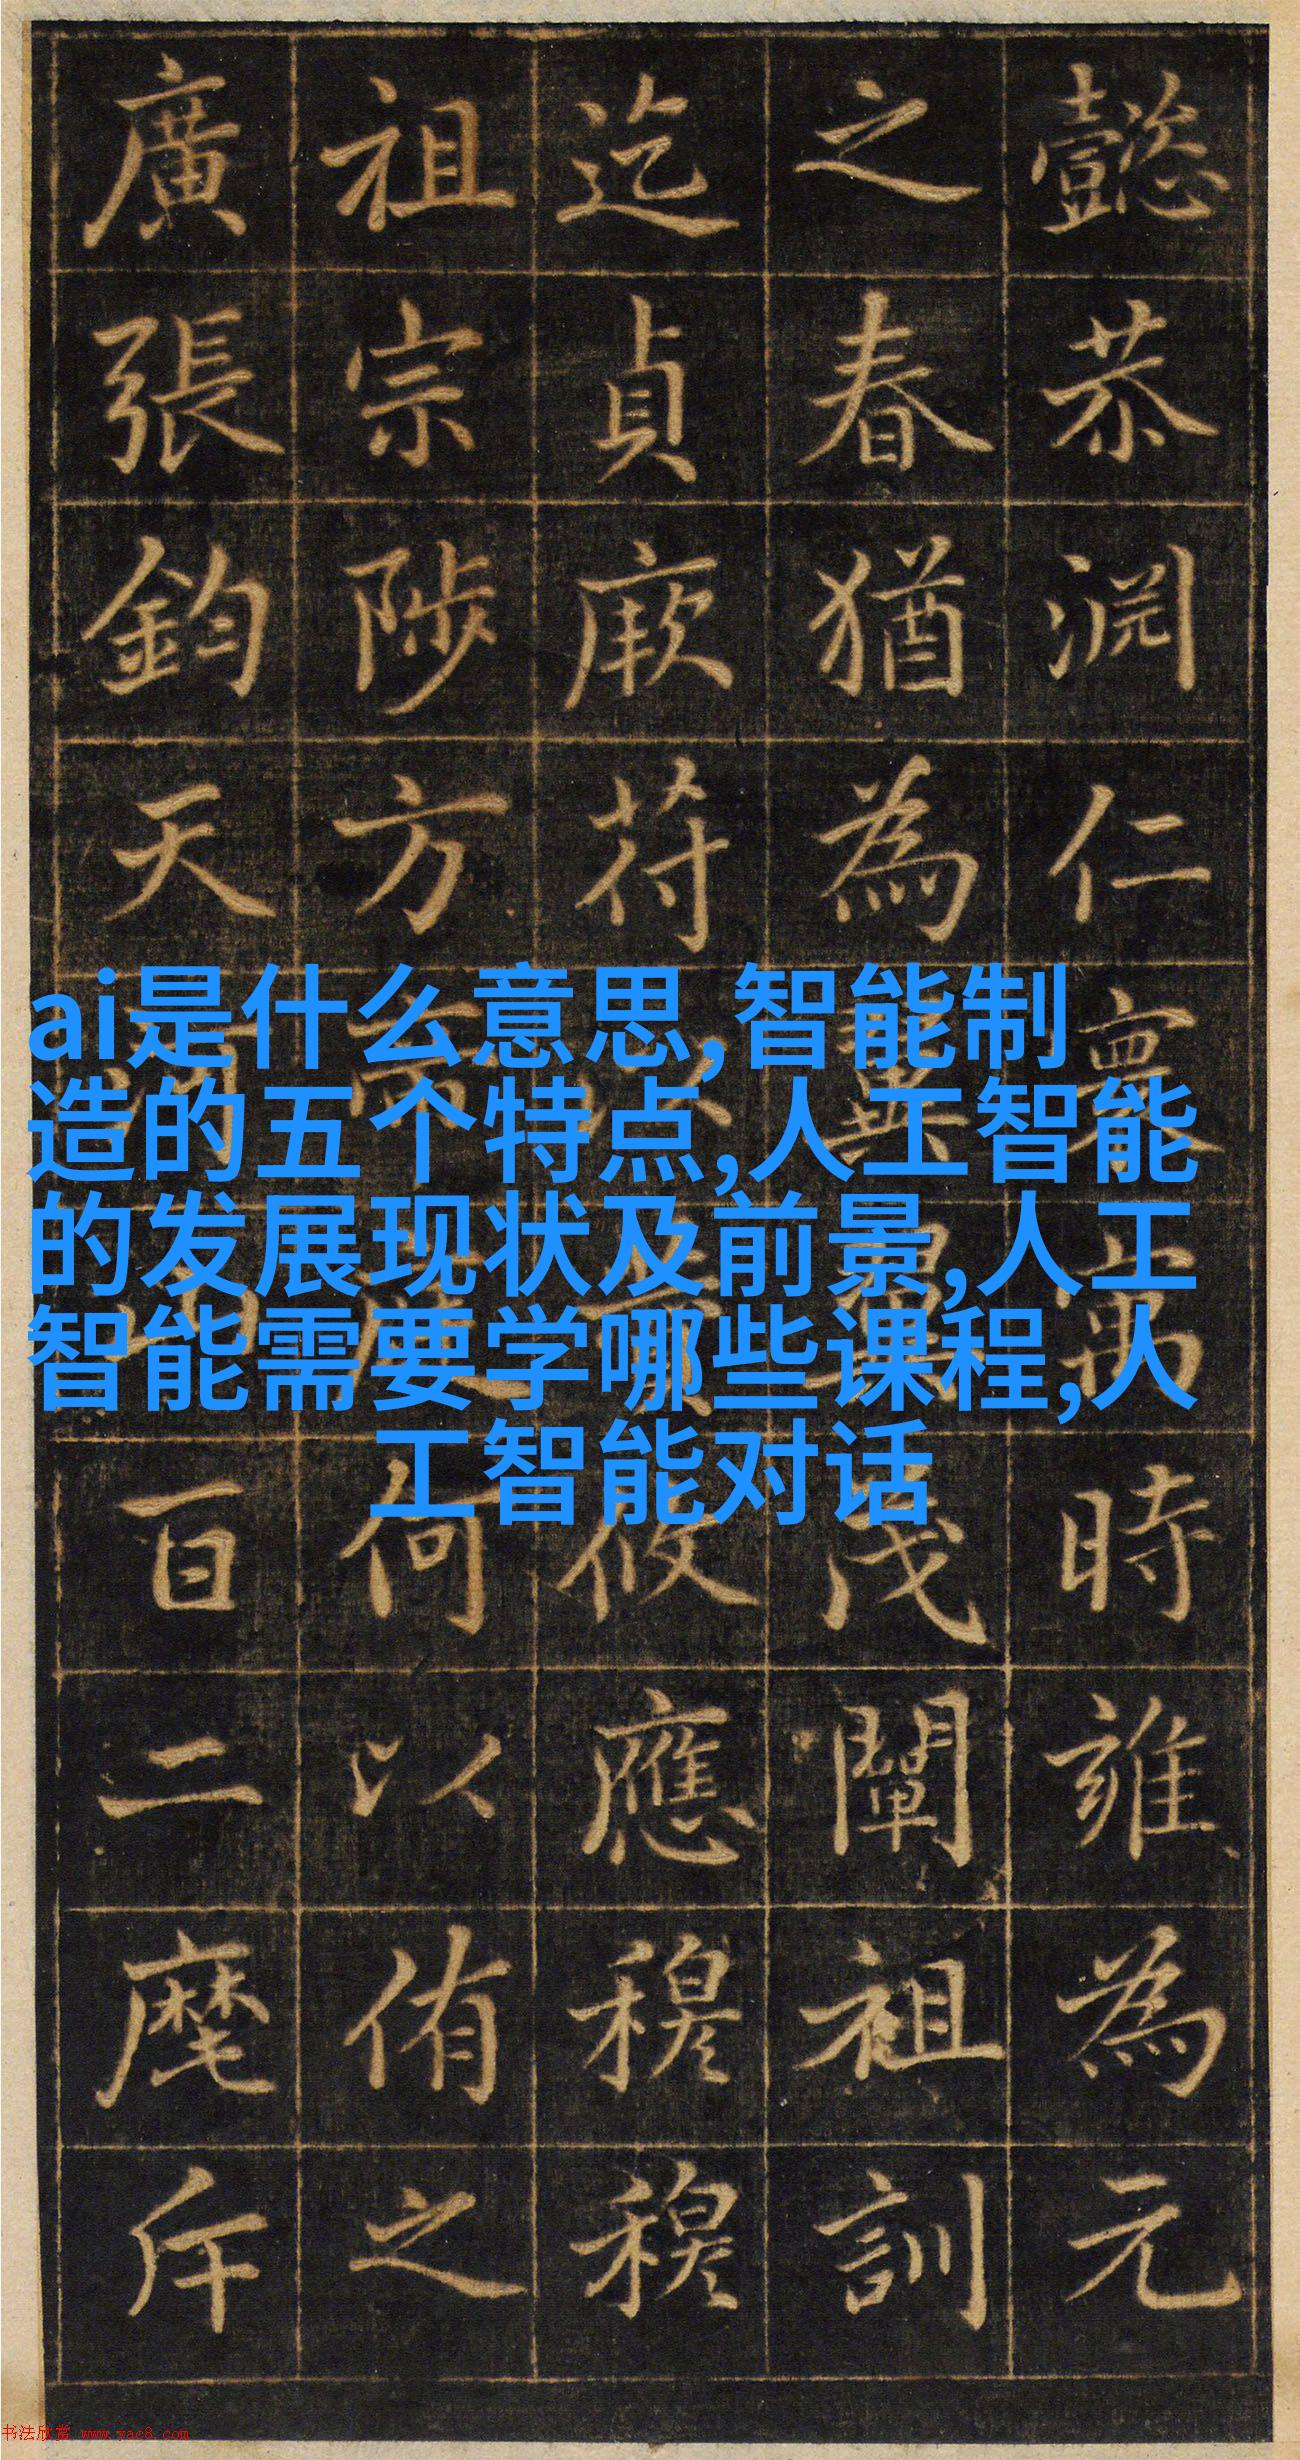 懿恭淵仁寰寓時雍為元
之春猶為茂闡祖訓
迄貞厥苻攸應穆穆
祖宗陟方何以侑之
廣張鈞天百二麾斥
ai是什么意思,智能制
造的五个特点,人工智能
的发展现状及前景,人工
智能需要学哪些课程,人
工智能对话
书法欣赏 www.yac8.com